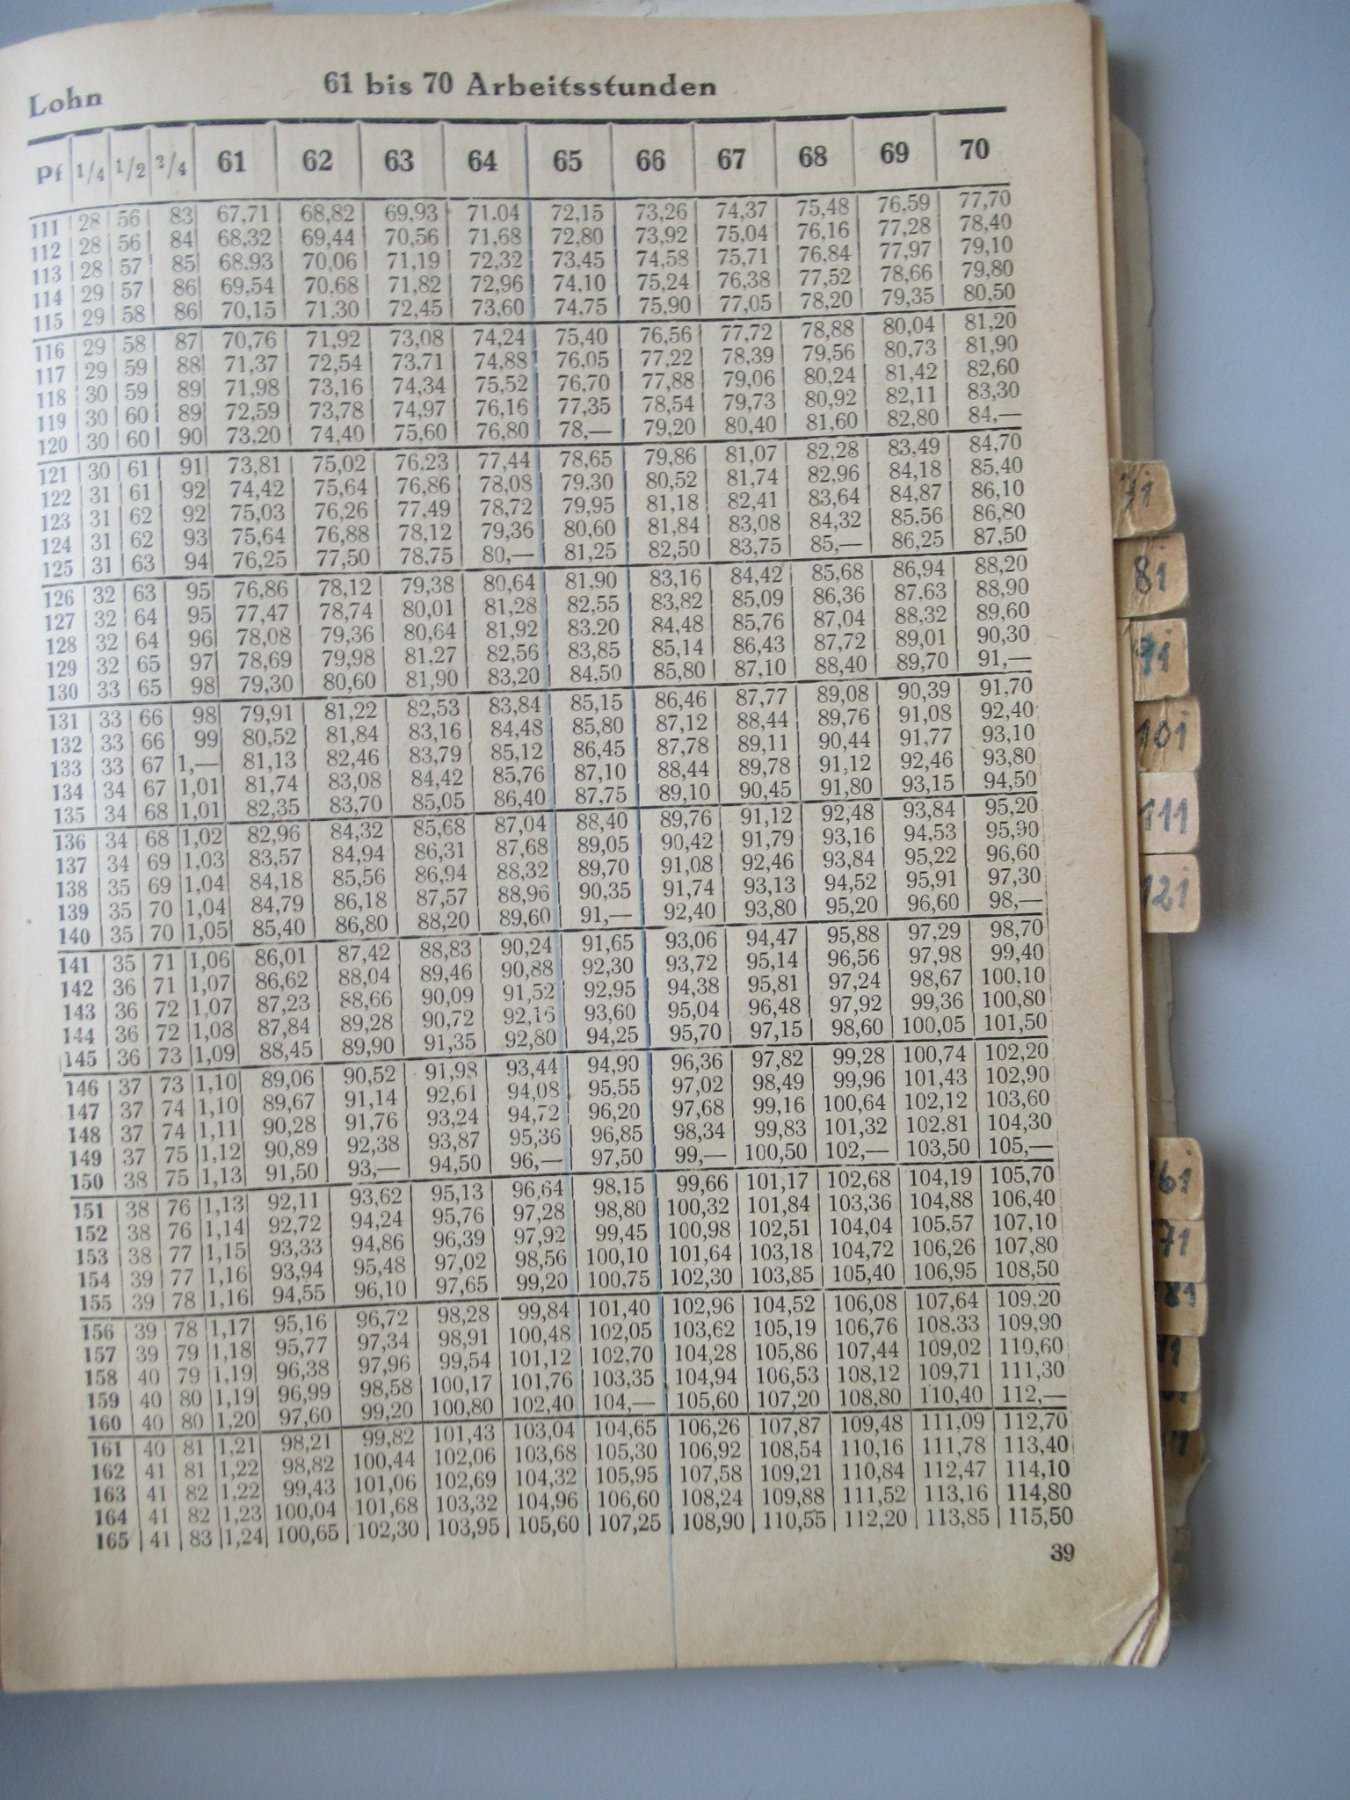 Lohn 61 bis 70 Arbeitsstunden
Pf 1/4 1/2 3/4 61 62 63 64 65 66 67 68 69 70
111 28 56 83 67,71 68,82 69,93 71,04 72,15 73,26 74,37 75,48 76,59 77,70
112 28 56 84 68,32 69,44 70,56 71,68 72,80 73,92 75,04 76,16 77,28 78,40
113 28 57 85 68,93 70,06 71,19 72,32 73,45 74,58 75,71 76,84 77,97 79,10
114 29 57 86 69,54 70,68 71,82 72,96 74,10 75,24 76,38 77,52 78,66 79,80
115 29 58 86 70,15 71,30 72,45 73,60 74,75 75,90 77,05 78,20 79,35 80,50
116 29 58 87 70,76 71,92 73,08 74,24 75,40 76,56 77,72 78,88 80,04 81,20
117 29 59 88 71,37 72,54 73,71 74,88 76,05 77,22 78,39 79,56 80,73 81,90
118 30 59 89 71,98 73,16 74,34 75,52 76,70 77,88 79,06 80,24 81,42 82,60
119 30 60 89 72,59 73,78 74,97 76,16 77,35 78,54 79,73 80,92 82,11 83,30
120 30 60 90 73,20 74,40 75,60 76,80 78,— 79,20 80,40 81,60 82,80 84,—
121 30 61 91 73,81 75,02 76,23 77,44 78,65 79,86 81,07 82,28 83,49 84,70
122 31 61 92 74,42 75,64 76,86 78,08 79,30 80,52 81,74 82,96 84,18 85,40
123 31 62 92 75,03 76,26 77,49 78,72 79,95 81,18 82,41 83,64 84,87 86,10
124 31 62 93 75,64 76,88 78,12 79,36 80,60 81,84 83,08 84,32 85,56 86,80
125 31 63 94 76,25 77,50 78,75 80,— 81,25 82,50 83,75 85,— 86,25 87,50
126 32 63 95 76,86 78,12 79,38 80,64 81,90 83,16 84,42 85,68 86,94 88,20
127 32 64 95 77,47 78,74 80,01 81,28 82,55 83,82 85,09 86,36 87,63 88,90
128 32 64 96 78,08 79,36 80,64 81,92 83,20 84,48 85,76 87,04 88,32 89,60
129 32 65 97 78,69 79,98 81,27 82,56 83,85 85,14 86,43 87,72 89,01 90,30
130 33 65 98 79,30 80,60 81,90 83,20 84,50 85,80 87,10 88,40 89,70 91,—
131 33 66 98 79,91 81,22 82,53 83,84 85,15 86,46 87,77 89,08 90,39 91,70
132 33 66 99 80,52 81,84 83,16 84,48 85,80 87,12 88,44 89,76 91,08 92,40
133 33 67 1,— 81,13 82,46 83,79 85,12 86,45 87,78 89,11 90,44 91,77 93,10
134 34 67 1,01 81,74 83,08 84,42 85,76 87,10 88,44 89,78 91,12 92,46 93,80
135 34 68 1,01 82,35 83,70 85,05 86,40 87,75 89,10 90,45 91,80 93,15 94,50
136 34 68 1,02 82,96 84,32 85,68 87,04 88,40 89,76 91,12 92,48 93,84 95,20
137 34 69 1,03 83,57 84,94 86,31 87,68 89,05 90,42 91,79 93,16 94,53 95,90
138 35 69 1,04 84,18 85,56 86,94 88,32 89,70 91,08 92,46 93,84 95,22 96,60
139 35 70 1,04 84,79 86,18 87,57 88,96 90,35 91,74 93,13 94,52 95,91 97,30
140 35 70 1,05 85,40 86,80 88,20 89,60 91,— 92,40 93,80 95,20 96,60 98,—
141 35 71 1,06 86,01 87,42 88,83 90,24 91,65 93,06 94,47 95,88 97,29 98,70
142 36 71 1,07 86,62 88,04 89,46 90,88 92,30 93,72 95,14 96,56 97,98 99,40
143 36 72 1,07 87,23 88,66 90,09 91,52 92,95 94,38 95,81 97,24 98,67 100,10
144 36 72 1,08 87,84 89,28 90,72 92,16 93,60 95,04 96,48 97,92 99,36 100,80
145 36 73 1,09 88,45 89,90 91,35 92,80 94,25 95,70 97,15 98,60 100,05 101,50
146 37 73 1,10 89,06 90,52 91,98 93,44 94,90 96,36 97,82 99,28 100,74 102,20
147 37 74 1,10 89,67 91,14 92,61 94,08 95,55 97,02 98,49 99,96 101,43 102,90
148 37 74 1,11 90,28 91,76 93,24 94,72 96,20 97,68 99,16 100,64 102,12 103,60
149 37 75 1,12 90,89 92,38 93,87 95,36 96,85 98,34 99,83 101,32 102,81 104,30
150 38 75 1,13 91,50 93,— 94,50 96,— 97,50 99,— 100,50 102,— 103,50 105,—
151 38 76 1,13 92,11 93,62 95,13 96,64 98,15 99,66 101,17 102,68 104,19 105,70
152 38 76 1,14 92,72 94,24 95,76 97,28 98,80 100,32 101,84 103,36 104,88 106,40
153 38 77 1,15 93,33 94,86 96,39 97,92 99,45 100,98 102,51 104,04 105,57 107,10
154 39 77 1,16 93,94 95,48 97,02 98,56 100,10 101,64 103,18 104,72 106,26 107,80
155 39 78 1,16 94,55 96,10 97,65 99,20 100,75 102,30 103,85 105,40 106,95 108,50
156 39 78 1,17 95,16 96,72 98,28 99,84 101,40 102,96 104,52 106,08 107,64 109,20
157 39 79 1,18 95,77 97,34 98,91 100,48 102,05 103,62 105,19 106,76 108,33 109,90
158 40 79 1,19 96,38 97,96 99,54 101,12 102,70 104,28 105,86 107,44 109,02 110,60
159 40 80 1,19 96,99 98,58 100,17 101,76 103,35 104,94 106,53 108,12 109,71 111,30
160 40 80 1,20 97,60 99,20 100,80 102,40 104,— 105,60 107,20 108,80 110,40 112,—
161 40 81 1,21 98,21 99,82 101,43 103,04 104,65 106,26 107,87 109,48 111,09 112,70
162 41 81 1,22 98,82 100,44 102,06 103,68 105,30 106,92 108,54 110,16 111,78 113,40
163 41 82 1,22 99,43 101,06 102,69 104,32 105,95 107,58 109,21 110,84 112,47 114,10
164 41 82 1,23 100,04 101,68 103,32 104,96 106,60 108,24 109,88 111,52 113,16 114,80
165 41 83 1,24 100,65 102,30 103,95 105,60 107,25 108,90 110,55 112,20 113,85 115,50
39
71
81
91
101
111
121
61
71
81